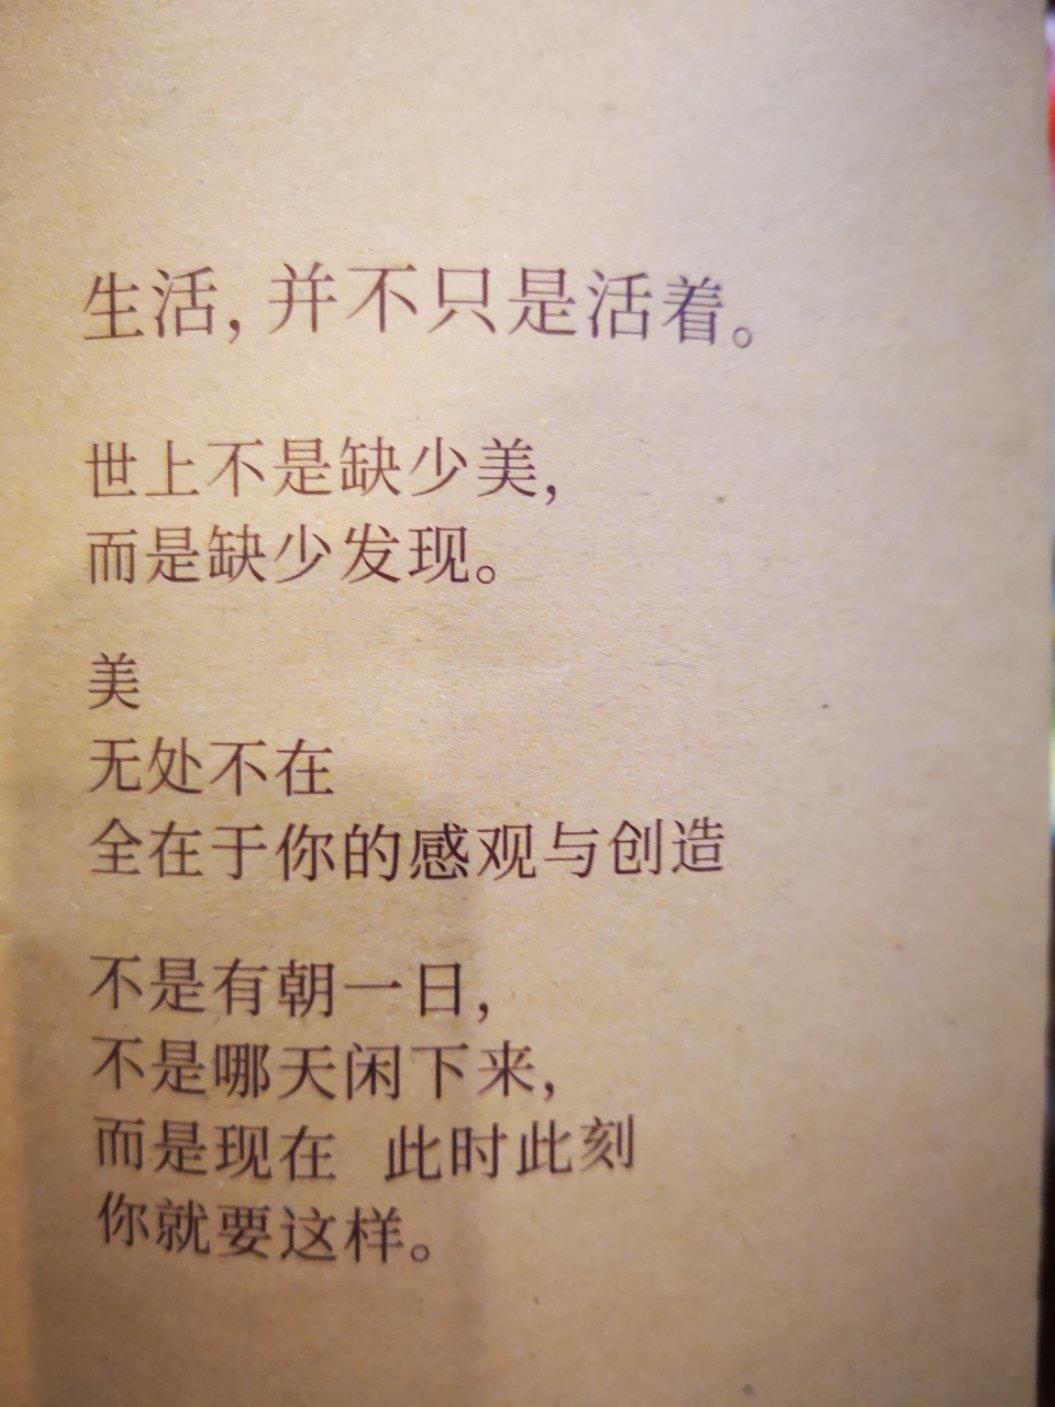 生活，并不只是活着。
世上不是缺少美，
而是缺少发现。
美
无处不在
全在于你的感观与创造
不是有朝一日，
不是哪天闲下来，
而是现在 此时此刻
你就要这样。